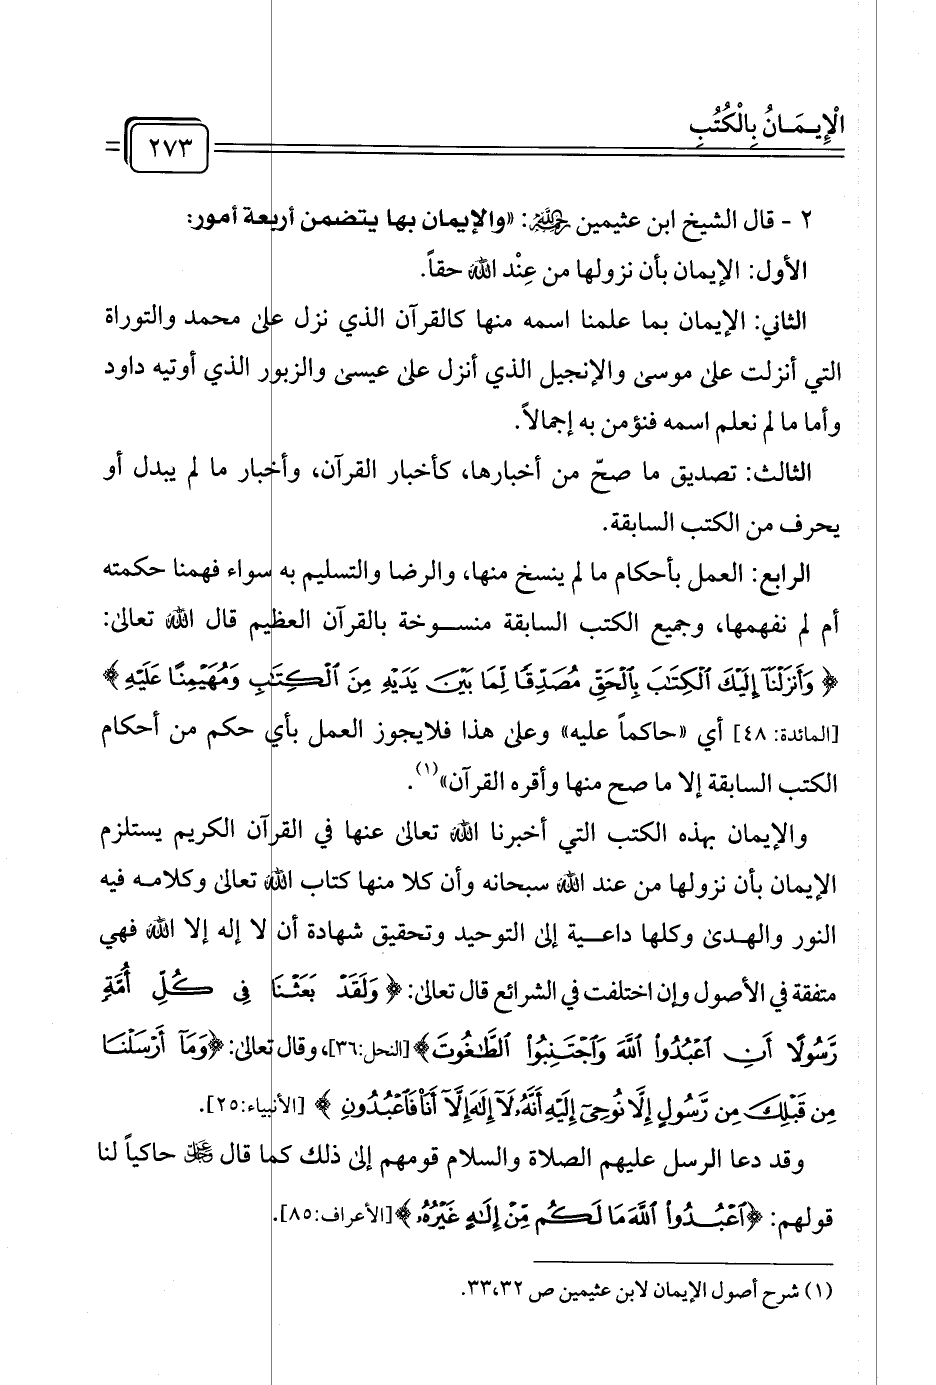 الْإِيـمَـانُ بِالْكُتُبِ
٢٧٣
٢ - قال الشيخ ابن عثيمين رحمه الله: «والإيمان بها يتضمن أربعة أمور:
الأول: الإيمان بأن نزولها من عِنْد الله حقاً.
الثاني: الإيمان بما علمنا اسمه منها كالقرآن الذي نزل على محمد والتوراة
التي أنزلت على موسى والإنجيل الذي أنزل على عيسى والزبور الذي أوتيه داود
وأما ما لم نعلم اسمه فنؤمن به إجمالاً.
الثالث: تصديق ما صحّ من أخبارها، كأخبار القرآن، وأخبار ما لم يبدل أو
يحرف من الكتب السابقة.
الرابع: العمل بأحكام ما لم ينسخ منها، والرضا والتسليم به سواء فهمنا حكمته
أم لم نفهمها، وجميع الكتب السابقة منسوخة بالقرآن العظيم قال الله تعالى:
﴿ وَأَنزَلْنَآ إِلَيْكَ ٱلْكِتَٰبَ بِٱلْحَقِّ مُصَدِّقًا لِّمَا بَيْنَ يَدَيْهِ مِنَ ٱلْكِتَٰبِ وَمُهَيْمِنًا عَلَيْهِ ﴾
[المائدة: ٤٨] أي «حاكماً عليه» وعلى هذا فلايجوز العمل بأي حكم من أحكام
الكتب السابقة إلا ما صح منها وأقره القرآن»(١).
والإيمان بهذه الكتب التي أخبرنا الله تعالى عنها في القرآن الكريم يستلزم
الإيمان بأن نزولها من عند الله سبحانه وأن كلا منها كتاب الله تعالى وكلامه فيه
النور والهدى وكلها داعية إلى التوحيد وتحقيق شهادة أن لا إله إلا الله فهي
متفقة في الأصول وإن اختلفت في الشرائع قال تعالى: ﴿ وَلَقَدْ بَعَثْنَا فِى كُلِّ أُمَّةٍ
رَّسُولًا أَنِ ٱعْبُدُوا۟ ٱللَّهَ وَٱجْتَنِبُوا۟ ٱلطَّٰغُوتَ ﴾ [النحل:٣٦]، وقال تعالى: ﴿وَمَآ أَرْسَلْنَا
مِن قَبْلِكَ مِن رَّسُولٍ إِلَّا نُوحِىٓ إِلَيْهِ أَنَّهُۥ لَآ إِلَٰهَ إِلَّآ أَنَا۠ فَٱعْبُدُونِ ﴾ [الأنبياء:٢٥].
وقد دعا الرسل عليهم الصلاة والسلام قومهم إلى ذلك كما قال ﷻ حاكياً لنا
قولهم: ﴿ٱعْبُدُوا۟ ٱللَّهَ مَا لَكُم مِّنْ إِلَٰهٍ غَيْرُهُۥ ﴾ [الأعراف:٨٥].
(١) شرح أصول الإيمان لابن عثيمين ص ٣٣،٣٢.